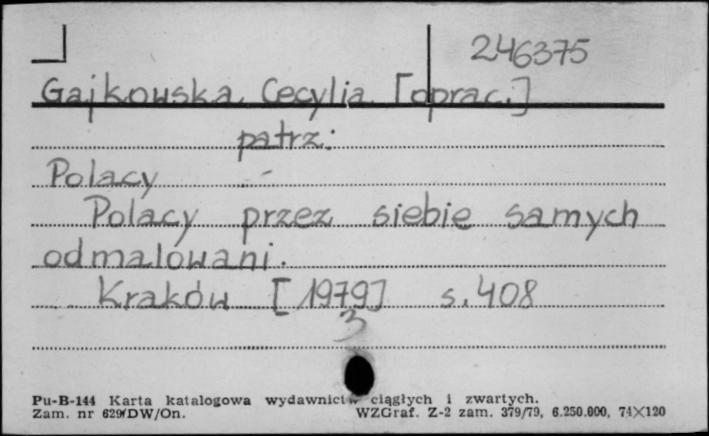 246375
Gajkowska, Cecylia [oprac.]
patrz:
Polacy
Polacy przez siebie samych
odmalowani.
Kraków [1979] s. 408
3
Pu-B-144 Karta katalogowa wydawnictw ciągłych i zwartych.
Zam. nr 629/DW/On. WZGraf. Z-2 zam. 379/79, 6.250.000, 74×120